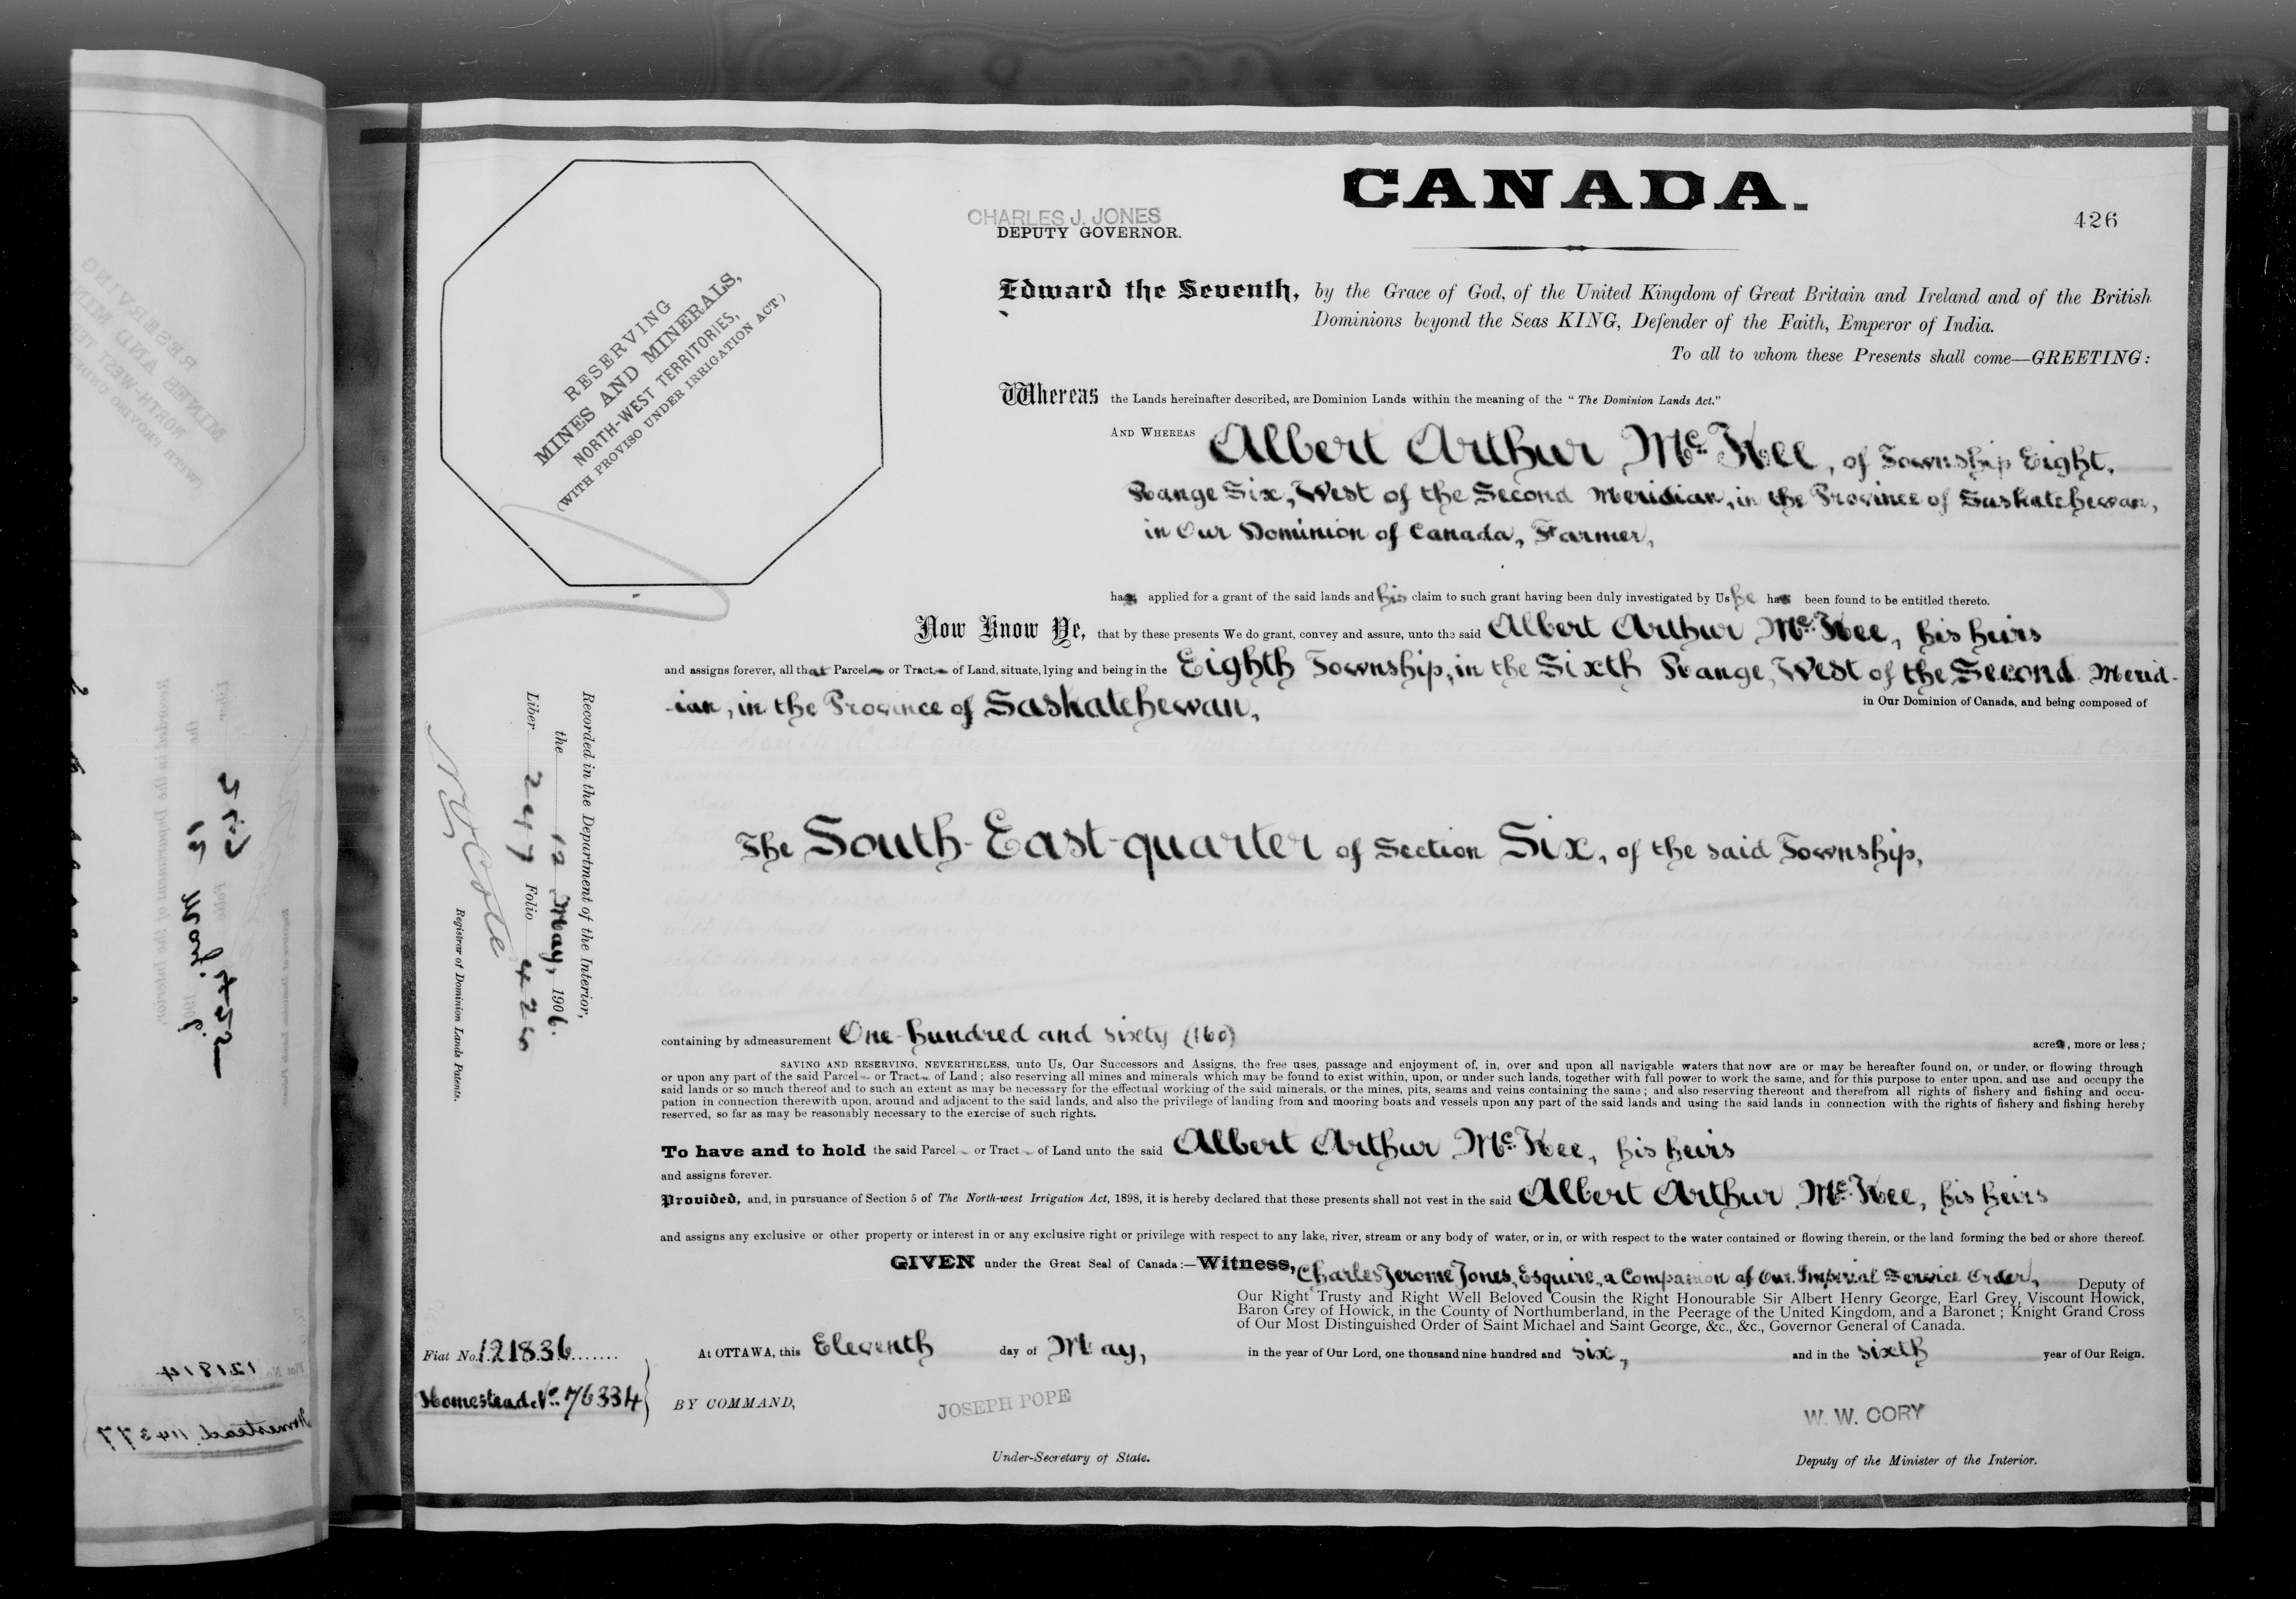 CANADA.
CHARLES J. JONES
DEPUTY GOVERNOR.
426
RESERVING
MINES AND MINERALS,
NORTH-WEST TERRITORIES,
(WITH PROVISO UNDER IRRIGATION ACT)
Edward the Seventh, by the Grace of God, of the United Kingdom of Great Britain and Ireland and of the British
Dominions beyond the Seas KING, Defender of the Faith, Emperor of India.
To all to whom these Presents shall come—GREETING:
Whereas the Lands hereinafter described, are Dominion Lands within the meaning of the "The Dominion Lands Act."
AND WHEREAS Albert Arthur McKee, of Township Eight,
Range Six, West of the Second Meridian, in the Province of Saskatchewan,
in Our Dominion of Canada, Farmer,
has applied for a grant of the said lands and his claim to such grant having been duly investigated by Us he has been found to be entitled thereto.
Now Know Ye, that by these presents We do grant, convey and assure, unto the said Albert Arthur McKee, his heirs
and assigns forever, all that Parcel or Tract of Land, situate, lying and being in the Eighth Township, in the Sixth Range, West of the Second Merid-
-ian, in the Province of Saskatchewan,
in Our Dominion of Canada, and being composed of
The South-East-quarter of Section Six, of the said Township,
Recorded in the Department of the Interior,
the 12 May, 1906.
Liber 247 Folio 426
N. O. Cote
Registrar of Dominion Lands Patents.
containing by admeasurement One-hundred and sixty (160) acres, more or less;
SAVING AND RESERVING, NEVERTHELESS, unto Us, Our Successors and Assigns, the free uses, passage and enjoyment of, in, over and upon all navigable waters that now are or may be hereafter found on, or under, or flowing through
or upon any part of the said Parcel or Tract of Land; also reserving all mines and minerals which may be found to exist within, upon, or under such lands, together with full power to work the same, and for this purpose to enter upon, and use and occupy the
said lands or so much thereof and to such an extent as may be necessary for the effectual working of the said minerals, or the mines, pits, seams and veins containing the same; and also reserving thereout and therefrom all rights of fishery and fishing and occu-
pation in connection therewith upon, around and adjacent to the said lands, and also the privilege of landing from and mooring boats and vessels upon any part of the said lands and using the said lands in connection with the rights of fishery and fishing hereby
reserved, so far as may be reasonably necessary to the exercise of such rights.
To have and to hold the said Parcel or Tract of Land unto the said Albert Arthur McKee, his heirs
and assigns forever.
Provided, and, in pursuance of Section 5 of The North-west Irrigation Act, 1898, it is hereby declared that these presents shall not vest in the said Albert Arthur McKee, his heirs
and assigns any exclusive or other property or interest in or any exclusive right or privilege with respect to any lake, river, stream or any body of water, or in, or with respect to the water contained or flowing therein, or the land forming the bed or shore thereof.
GIVEN under the Great Seal of Canada:—Witness, Charles Jerome Jones, Esquire, a Companion of Our Imperial Service Order, Deputy of
Our Right Trusty and Right Well Beloved Cousin the Right Honourable Sir Albert Henry George, Earl Grey, Viscount Howick,
Baron Grey of Howick, in the County of Northumberland, in the Peerage of the United Kingdom, and a Baronet; Knight Grand Cross
of Our Most Distinguished Order of Saint Michael and Saint George, &c., &c., Governor General of Canada.
Fiat No. 121836
At OTTAWA, this Eleventh day of May, in the year of Our Lord, one thousand nine hundred and six, and in the sixth year of Our Reign.
Homestead No. 76334
BY COMMAND,
JOSEPH POPE
W. W. CORY
Under-Secretary of State.
Deputy of the Minister of the Interior.